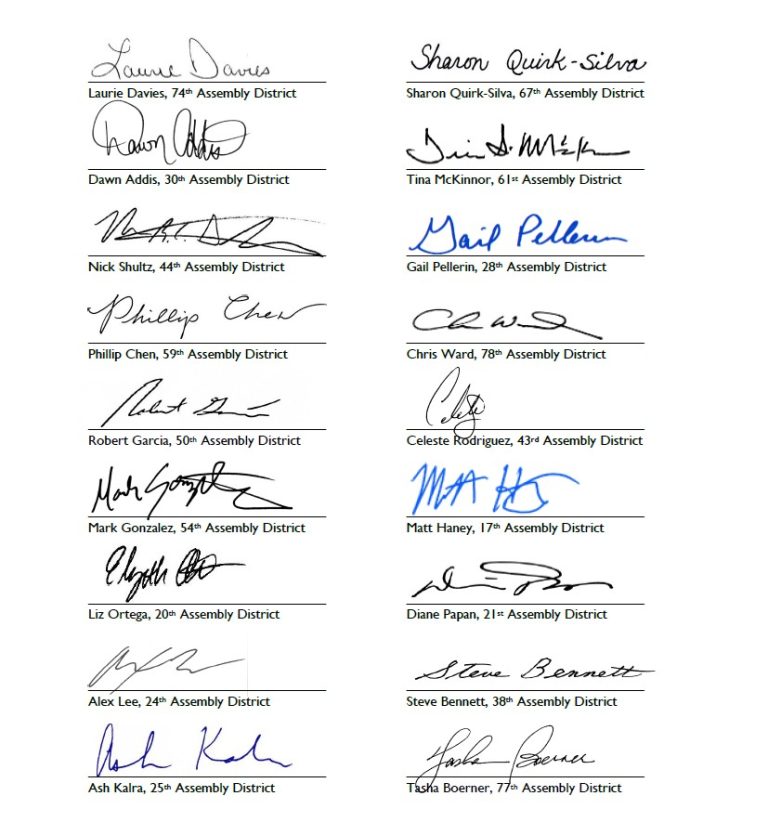 Laurie Davies
Laurie Davies, 74th Assembly District
Sharon Quirk-Silva
Sharon Quirk-Silva, 67th Assembly District
Dawn Addis
Dawn Addis, 30th Assembly District
Tina S. McK
Tina McKinnor, 61st Assembly District
Nick Shultz, 44th Assembly District
Gail Pellerin
Gail Pellerin, 28th Assembly District
Phillip Chen
Phillip Chen, 59th Assembly District
Chris Ward, 78th Assembly District
Robert
Robert Garcia, 50th Assembly District
Celeste
Celeste Rodriguez, 43rd Assembly District
Mark Gonzalez
Mark Gonzalez, 54th Assembly District
Matt
Matt Haney, 17th Assembly District
Elizabeth
Liz Ortega, 20th Assembly District
Diane Papan, 21st Assembly District
Alex Lee, 24th Assembly District
Steve Bennett
Steve Bennett, 38th Assembly District
Ash Kalra
Ash Kalra, 25th Assembly District
Tasha Boerner
Tasha Boerner, 77th Assembly District